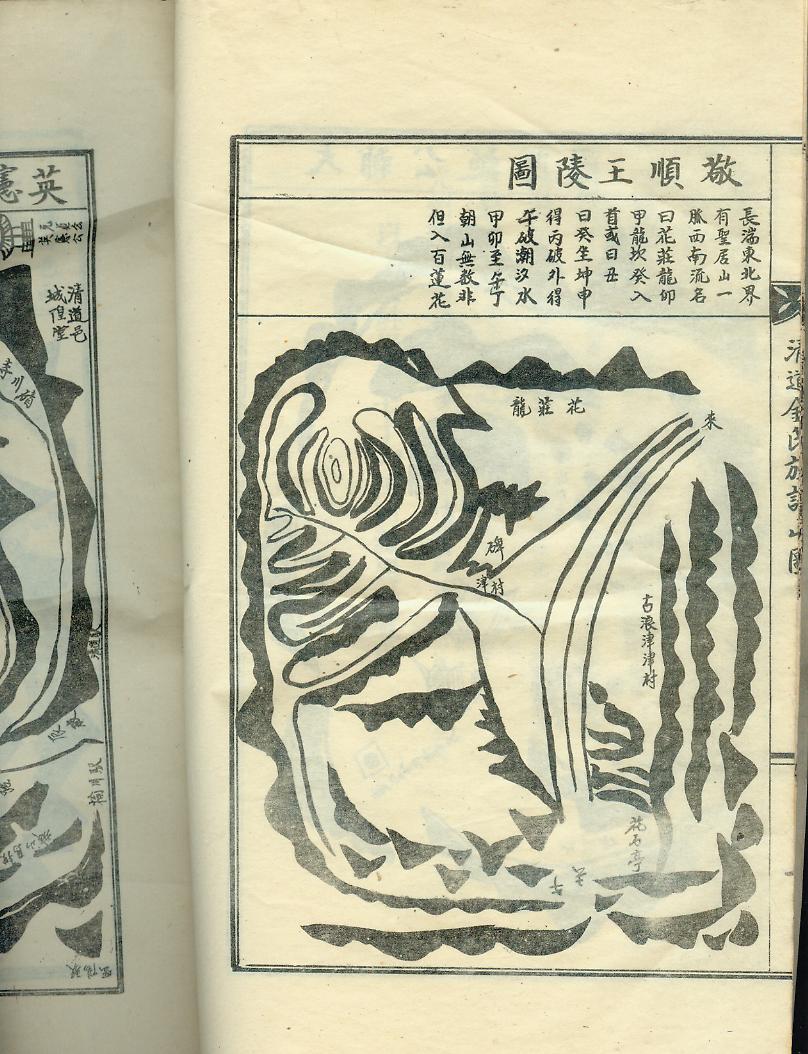 敬順王陵圖
長湍東北界
有聖居山一
脉西南流名
曰花莊龍卯
甲龍坎癸入
首或曰丑
曰癸坐坤申
得丙破外得
午破潮汐水
甲卯至午丁
朝山無數非
但入百蓮花
花莊龍
來
碑
津村
古浪津津村
花石亭
清道金氏族譜山圖
英憲
清道邑
城隍堂